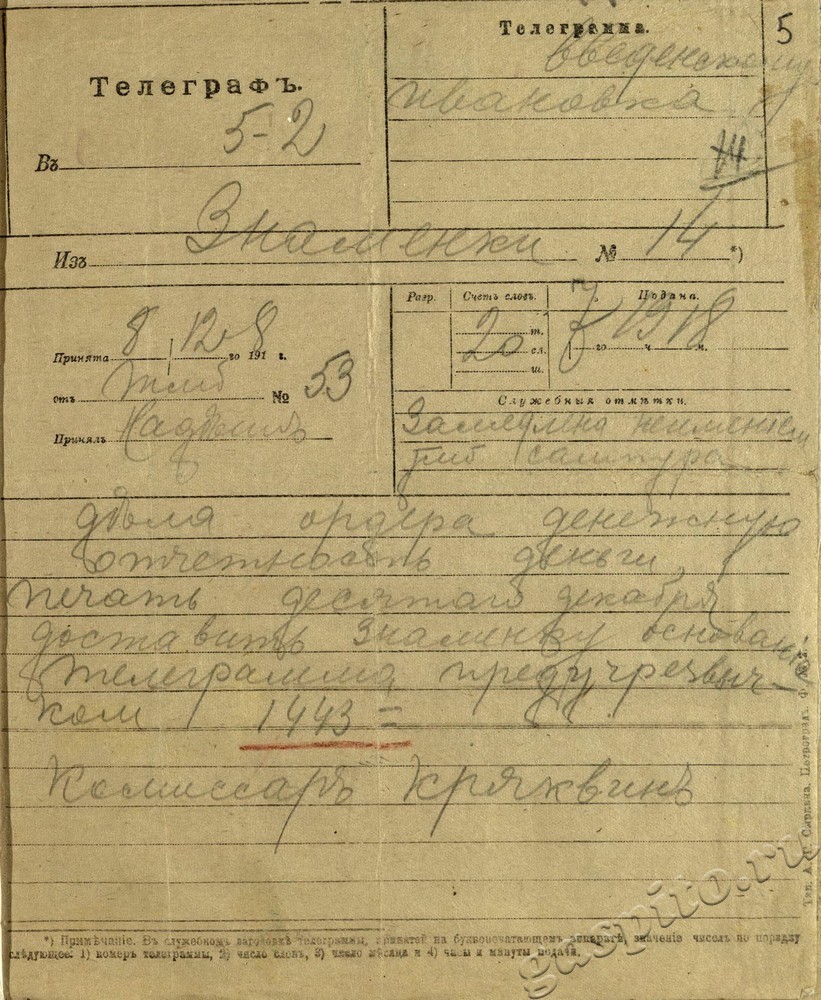 Телеграмма.
5
Введенскому
Ивановка
Телеграфъ.
Въ 5-2
Изъ Знаменки № 14 *)
Разр. Счетъ словъ. Подана.
20 т. сл. ш.
7 го ч. м. 1918
Принята 8 12 го 1918 г.
отъ тмб № 53
Принялъ
Служебныя отмѣтки.
Замедлена неимением
тмб сампура
дѣла ордера денежную
отчетность деньги
печать десятаго декабря
доставить Знаменку основании
телеграмма предучрезвыч-
ком 1443 =
Комиссаръ Кряквинъ
Тип. А. Г. Сыркина. Петроградъ. Ф. № 2.
*) Примѣчаніе. Въ служебномъ заголовкѣ телеграммы, принятой на буквопечатающемъ аппаратѣ, значеніе чиселъ по порядку
слѣдующее: 1) номеръ телеграммы, 2) число словъ, 3) число мѣсяца и 4) часы и минуты подачи.
gaspito.ru